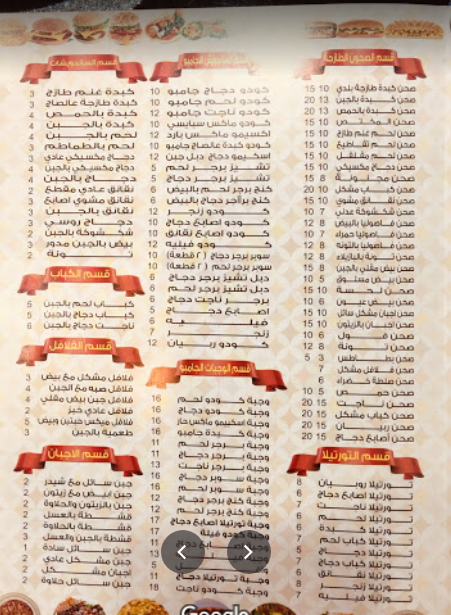 قسم الصحون الطازجة
صحن كبدة طازجة بلدي 10 15
صحن كبدة بالجبن 13 20
صحن كبدة بالحمص 13 20
صحن المكتص 10 15
صحن لحم غنم طازج 10 15
صحن لحم تقاطيع 10 15
صحن لحم مقلقل 10 15
صحن دجاج مكسيكي 10 15
صحن مجنونة 8 15
صحن كباب مشكل 10 20
صحن نقانق مشوي 10 15
صحن شكشوكة عدني 7 10
صحن فاصوليا بالبيض 8 12
صحن فاصوليا حمراء 7 10
صحن فاصوليا بالتونة 8 12
صحن تونة بالباينلاء 8 12
صحن بيض مقلي بالجبن 8 15
صحن بيض مسلوق 5 10
صحن لحسة 10 15
صحن بيض عيون 6 10
صحن اجبان مشكل سائل 10 15
صحن اجبان بالزيتون 10 15
صحن فول 6 10
صحن تونة 8 12
صحن بطاطس 3 5
صحن فلافل مشكل 7
صحن سلطة خضراء 6
صحن حمص 5 10
صحن ناجت 15 20
صحن كباب مشكل 15 20
صحن ربيان 15 20
صحن أصابع دجاج 15 20
قسم التورتيلا
تورتيلا روبيان 8
تورتيلا اصابع دجاج 6
تورتيلا ناجت 7
تورتيلا لحم 6
تورتيلا كبدة 6
تورتيلا كباب لحم 7
تورتيلا دجاج 5
تورتيلا كباب دجاج 7
تورتيلا نقانق 6
تورتيلا زنجر 8
تورتيلا فيليه 7
الجامبو
كودو دجاج جامبو 10
كودو لحم جامبو 10
كودو ناجت جامبو 12
كودو ماكس سبايسي 10
اكسيمو ماكس بارد 12
كودو كبدة عالصاج جامبو 10
اسكيمو دجاج دبل جبن 12
تشيز برجر لحم 5
تشيز برجر دجاج 5
كنج برجر لحم بالبيض 6
كنج برجر دجاج بالبيض 6
كودو زنجر 12
كودو اصابع دجاج 10
كودو اصابع نقانق 10
كودو فيليه 12
سوبر برجر دجاج (٢ قطعة) 10
سوبر برجر لحم (٢ قطعة) 10
دبل تشيز برجر دجاج 6
دبل تشيز برجر لحم 6
برجر ناجت دجاج 6
اصابع دجاج 5
فيليه 6
زنجر 7
كودو ربيان 12
قسم الوجبات الجامبو
وجبة كودو لحم 16
وجبة كودو دجاج 16
وجبة اسكيمو ماكس حار 16
وجبة كبدة جامبو 16
وجبة برجر لحم 11
وجبة برجر دجاج 11
وجبة برجر ناجت 13
وجبة سوبر دجاج 16
وجبة سوبر لحم 16
وجبة كنج برجر دجاج 12
وجبة كنج برجر لحم 12
وجبة تورتيلا اصابع دجاج 17
وجبة كودو فيلة 17
دجاج
وجبة تورتيلا دجاج 11
وجبة كودو ناجت 18
قسم الساندويتشات
كبدة غنم طازج 3
كبدة طازجة عالصاج 3
كبدة بالحمص 4
كبدة بالجبن 4
لحم بالجبن 4
لحم بالطماطم 3
دجاج مكسيكي عادي 3
دجاج مكسيكي بالجبن 4
دجاج بالجبن 4
نقانق عادي مقطع 2
نقانق مشوي اصابع 3
نقانق بالجبن 3
دجاج روسي 3
شكشوكة بالجبن 2
بيض بالجبن مدور 3
تونة 2
قسم الكباب
كباب لحم بالجبن 5
كباب دجاج بالجبن 5
ناجت دجاج بالجبن 6
قسم الفلافل
فلافل مشكل مع بيض 3
فلافل صبه مع الجبن 4
فلافل جبن بيض مقلي 4
فلافل عادي خبز 2
فلافل ميكس جبنين وبيض 5
طعمية بالجبن 3
قسم الاجبان
جبن سائل مع شيدر 2
جبن ابيض مع زيتون 2
جبن بالزيتون والحلاوة 2
قشطة بالعسل 2
قشطة بالحلاوة 2
قشطة بالجبن والعسل 3
جبن سائل سادة 1
جبن مشكل عادي 2
اجبان مشكل 2
جبن سائل حلاوة 2
Google